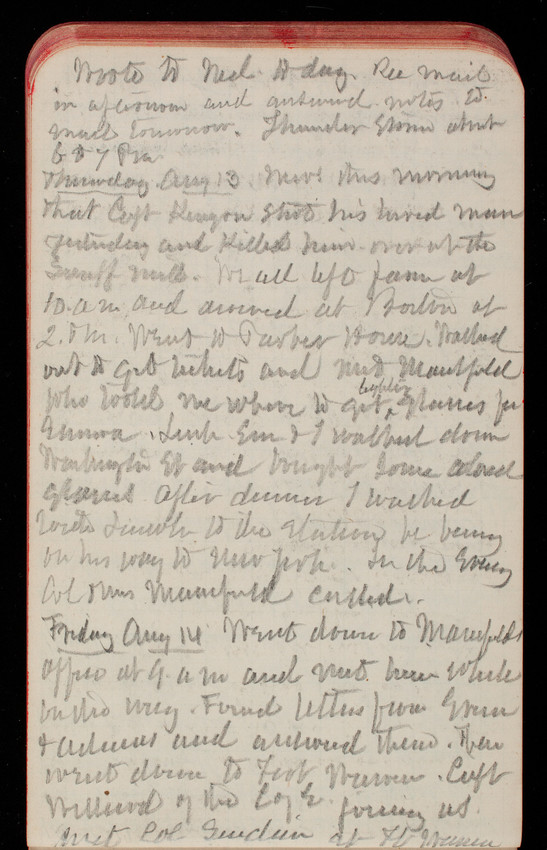 Wrote to Ned to day. Rec mail
in afternoon and answered notes to
mail tomorrow. Thunder Storm about
6 to 7 Pm
Thursday Aug 13 this morning
that Capt Kenyon Shot his hired man
yesterday and Killed him over at the
Snuff mill. We all left farm at
10. a m and arrived at Boston at
2. P m. Went to Parker House. Walked
out to get tickets and met Mansfield
who told me where to get glasses for
Emma. Link Em & I walked down
Washington St and bought some colored
glasses after dinner I walked
with Lincoln to the Station he being
on his way to New York. In the Evening
Col & Mrs Mansfield called.
Friday Aug 14 Went down to Mansfields
office at 9. a m and met him while
on the way. Found letters from Green
& Adams and answered them. Then
went down to Fort Warren. Capt
Willard of the Eng joining us.
Met Col at Ft Warren